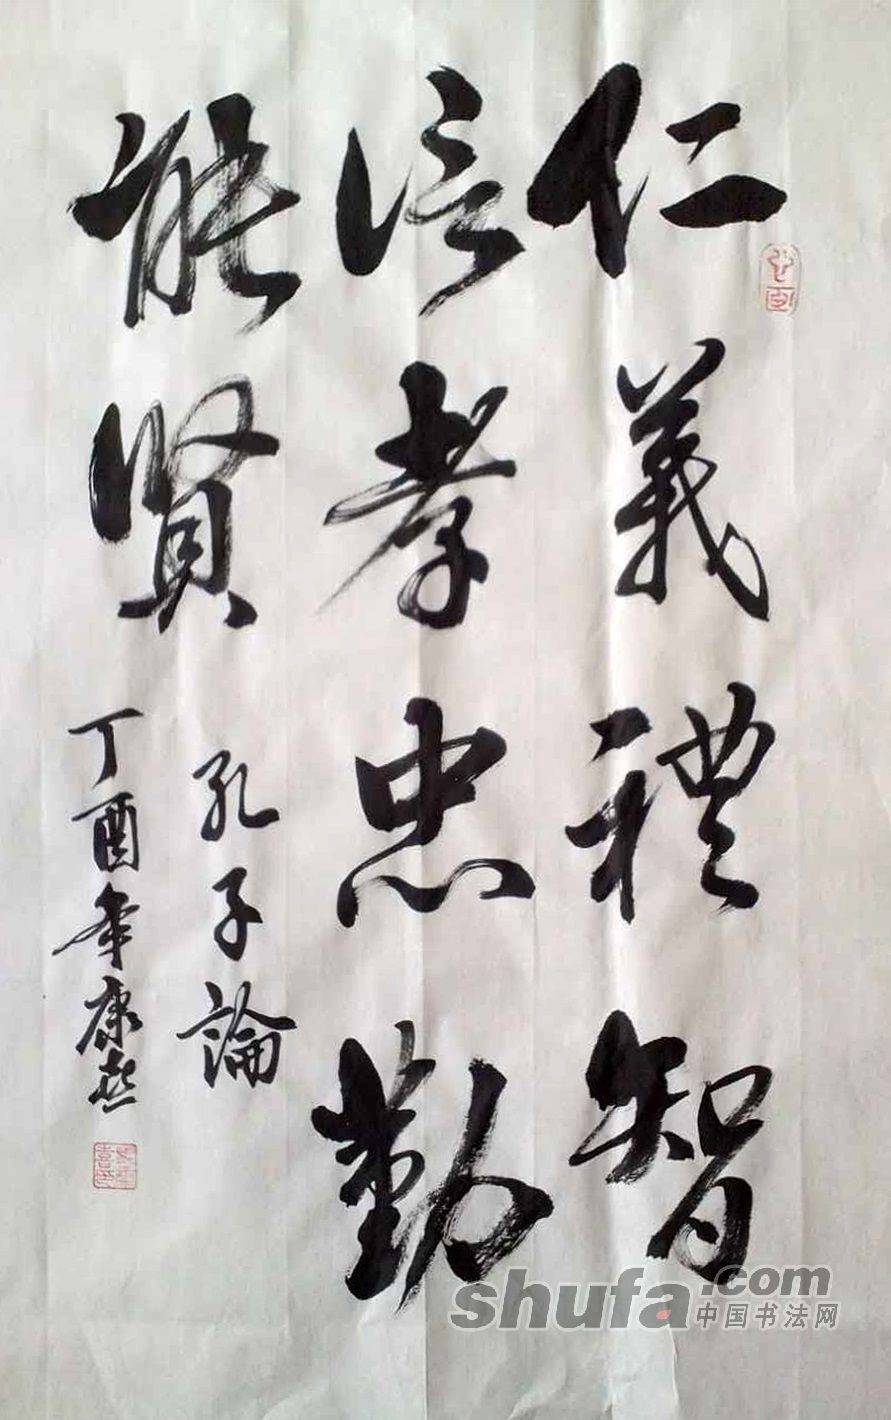 仁義禮智
信孝忠勤
能賢
孔子論
丁酉年康熹
shufa.com
中国书法网